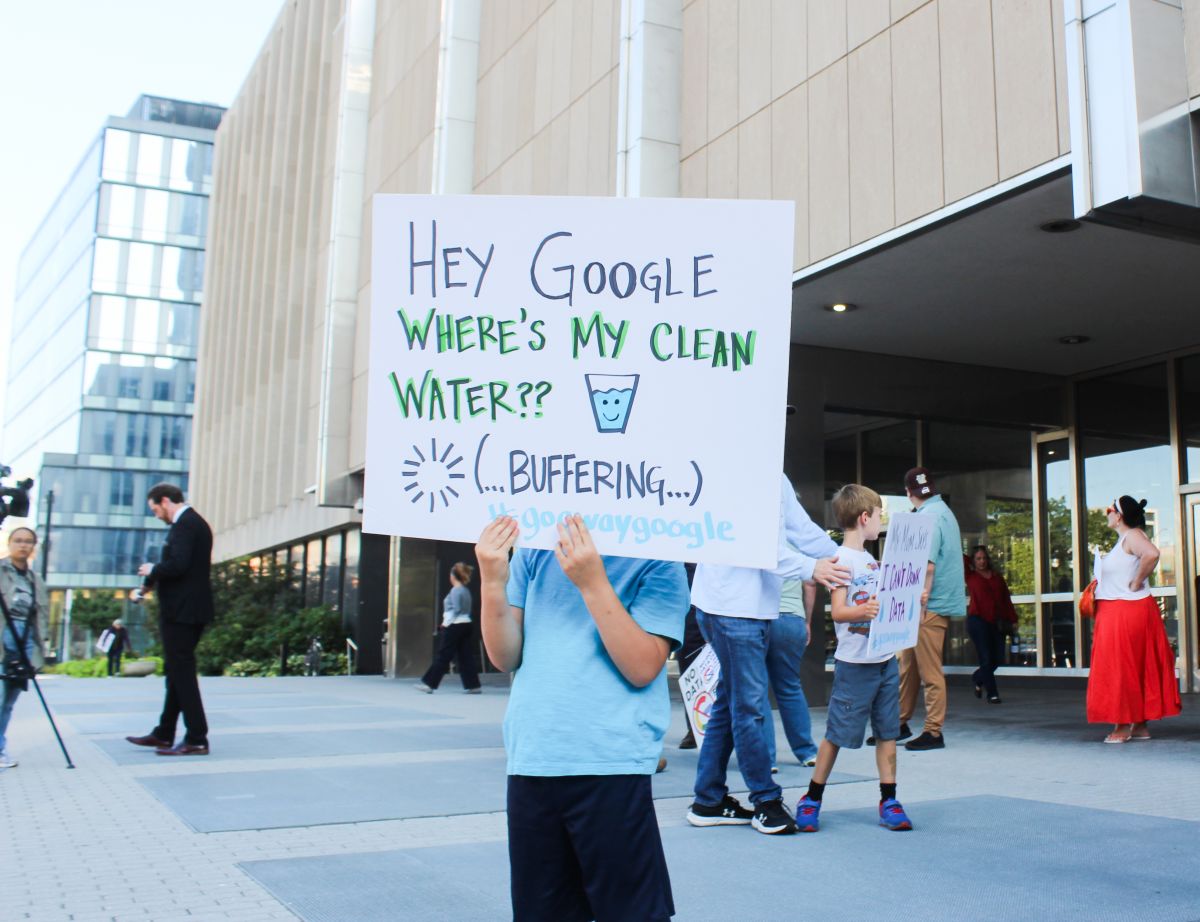 HEY GOOGLE
WHERE'S MY CLEAN
WATER??
(...BUFFERING...)
#goawaygoogle
MY MOM SAYS
I CAN'T DRINK
DATA
NO
DATA